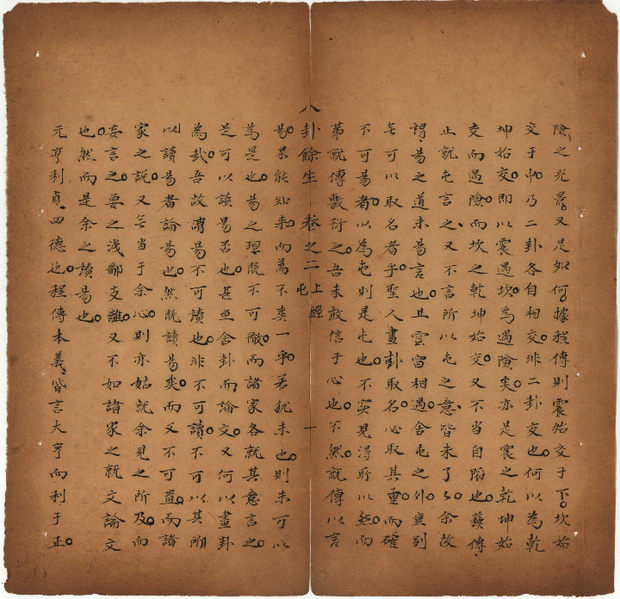 險之光景又是如何據程傳則震始交于下坎始
交于中乃二卦各自相交非二卦交也何以為乾
坤始交即以震遇坎為遇險矣亦是震之乾坤始
交而遇險而坎之乾坤始交又不當自蹈也薙傳
止就屯言之又不言所以屯之意皆未了了余故
謂易之道未易言也且雲雷相遇舍屯之外豈別
無可以取名者乎聖人畫卦取名心取其重而確
不可易者以為屯則是屯也不寔見得所以然而
第就傳敷衍之吾未敢信于心也不然就傳以言
八卦餘生 卷之二上經 屯 一
易果能知來而萬不爽一乎若犹未也則未可以
為是也易之理既不可徹而諸家各就其意言之
是可以談易否也甚至舍卦而論文又何以畫卦
為哉吾故謂易不可讀也非不可讀不可以其所
以讀易者論易也然既讀易矣而又不可置而諸
家之說又無當于余心則亦姑就余見之所及而
妄言之要之浅鄙支離又不如諸家之就文論文
也然而是余之讀易也
元亨利貞四德也程傳本義皆言大亨而利于正